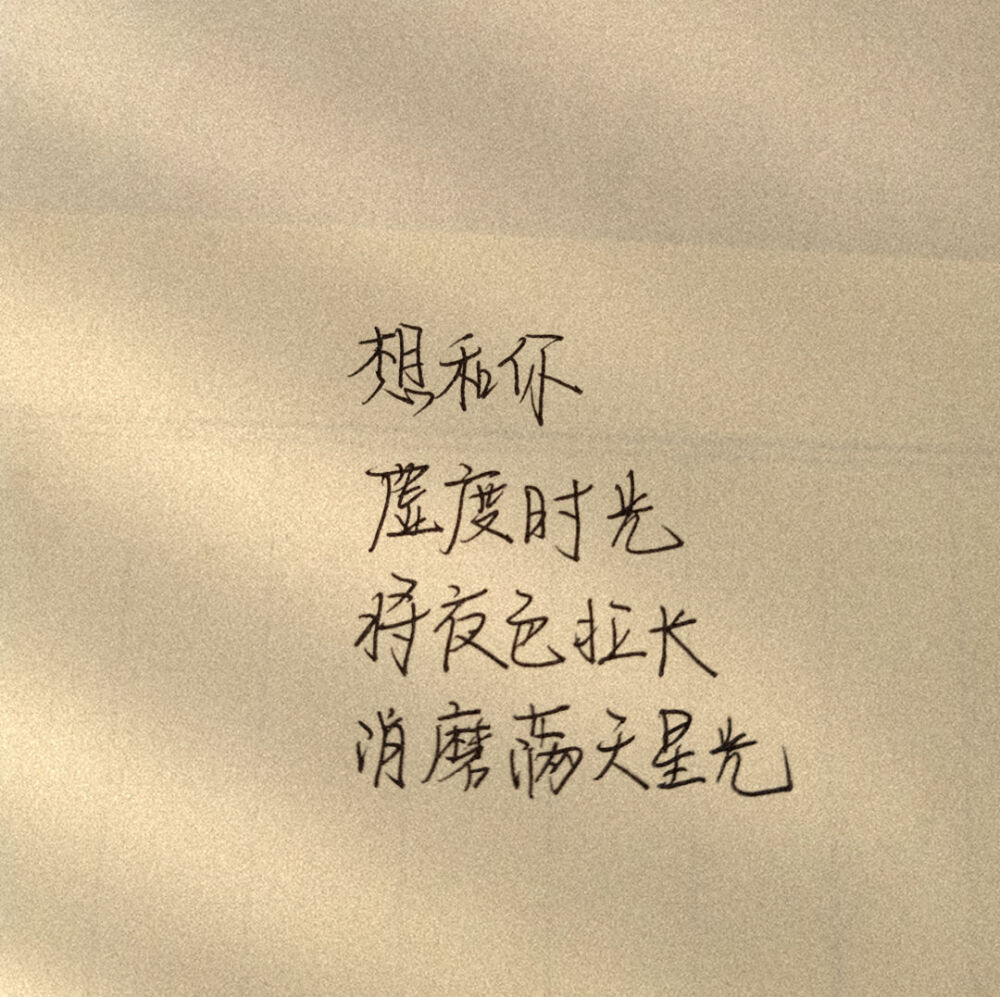 想和你
虚度时光
将夜色拉长
消磨满天星光